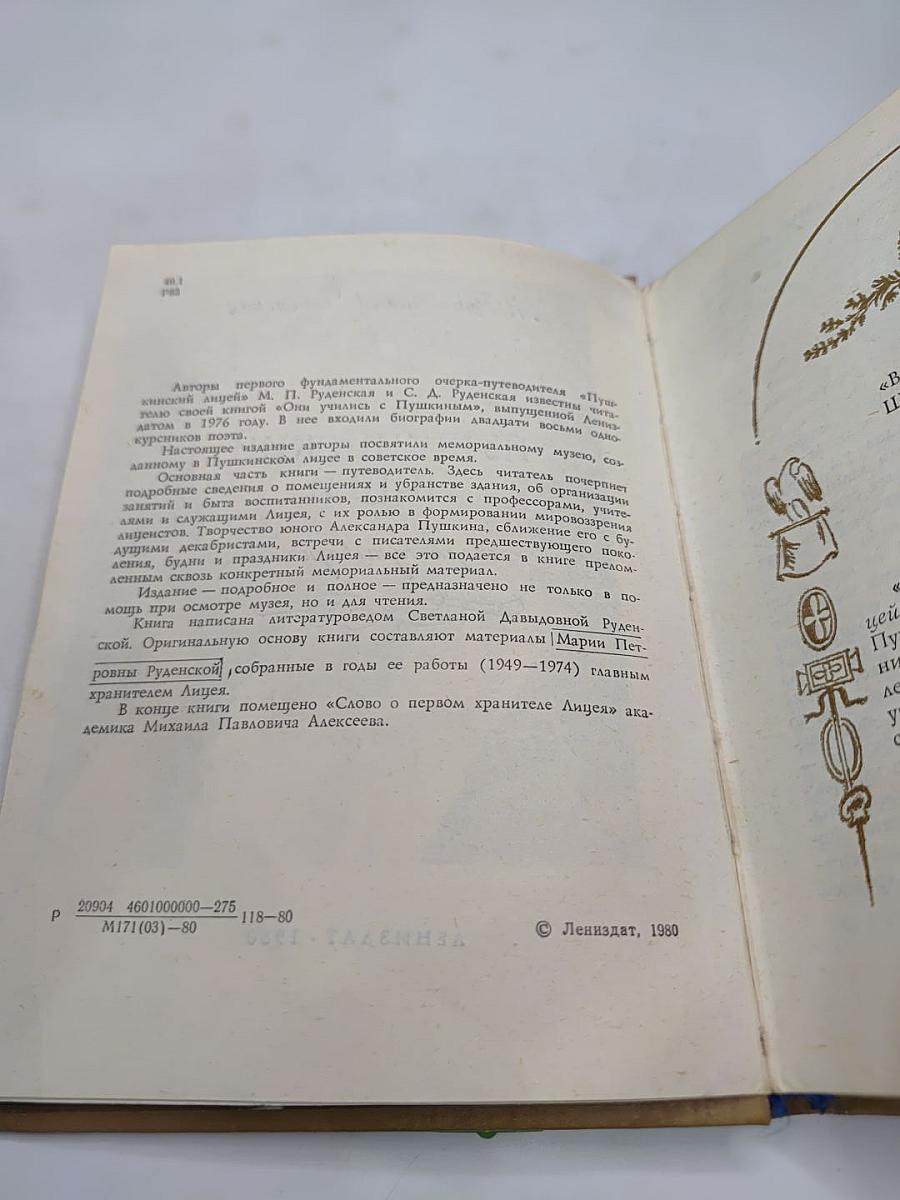 Авторы первого фундаментального очерка-путеводителя «Пуш-
кинский лицей» М. П. Руденская и С. Д. Руденская известны чита-
телю своей книгой «Они учились с Пушкиным», выпущенной Лениз-
датом в 1976 году. В нее входили биографии двадцати восьми одно-
курсников поэта.
Настоящее издание авторы посвятили мемориальному музею, соз-
данному в Пушкинском лицее в советское время.
Основная часть книги — путеводитель. Здесь читатель почерпнет
подробные сведения о помещениях и убранстве здания, об организации
занятий и быта воспитанников, познакомится с профессорами, учите-
лями и служащими Лицея, с их ролью в формировании мировоззрения
лицеистов. Творчество юного Александра Пушкина, сближение его с бу-
дущими декабристами, встречи с писателями предшествующего поко-
ления, будни и праздники Лицея — все это подается в книге прелом-
ленным сквозь конкретный мемориальный материал.
Издание — подробное и полное — предназначено не только в по-
мощь при осмотре музея, но и для чтения.
Книга написана литературоведом Светланой Давыдовной Руден-
ской. Оригинальную основу книги составляют материалы Марии Пет-
ровны Руденской, собранные в годы ее работы (1949—1974) главным
хранителем Лицея.
В конце книги помещено «Слово о первом хранителе Лицея» ака-
демика Михаила Павловича Алексеева.
Р 20904 4601000000—275 118—80
М171(03)—80
© Лениздат, 1980